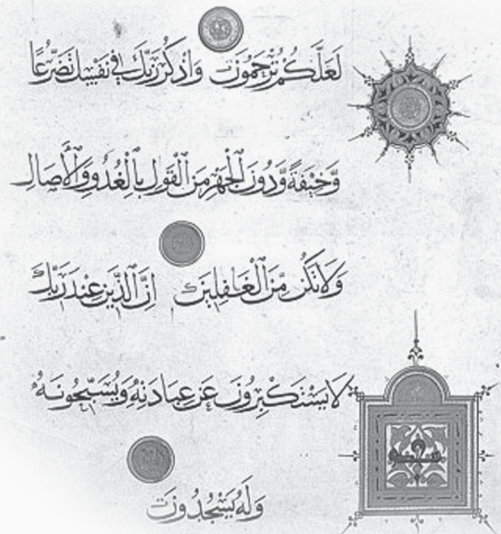 لَعَلَّكُمْ تُرْحَمُونَ وَاذْكُرْ رَبَّكَ فِي نَفْسِكَ تَضَرُّعًا
وَخِيفَةً وَدُونَ الْجَهْرِ مِنَ الْقَوْلِ بِالْغُدُوِّ وَالْآصَالِ
وَلَا تَكُنْ مِنَ الْغَافِلِينَ إِنَّ الَّذِينَ عِنْدَ رَبِّكَ
لَا يَسْتَكْبِرُونَ عَنْ عِبَادَتِهِ وَيُسَبِّحُونَهُ
وَلَهُ يَسْجُدُونَ